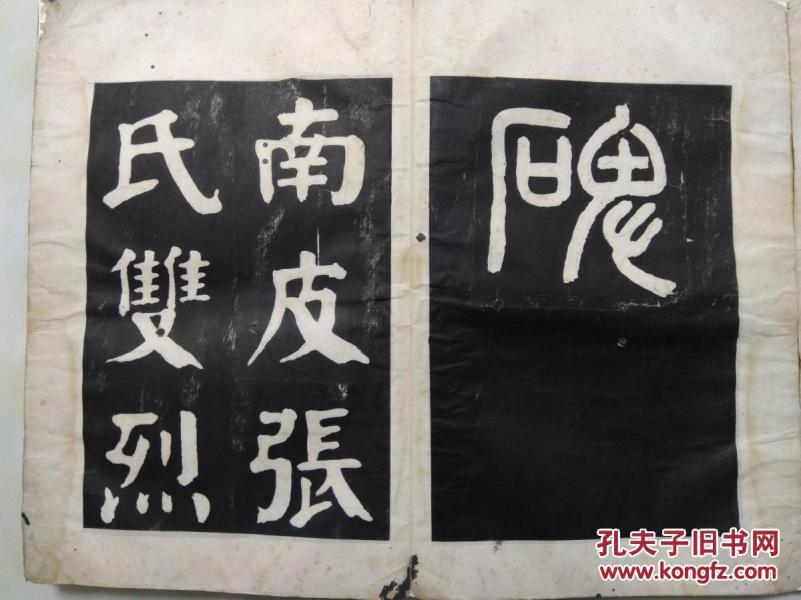 碑
南皮張
氏雙烈
孔夫子旧书网
www.kongfz.com